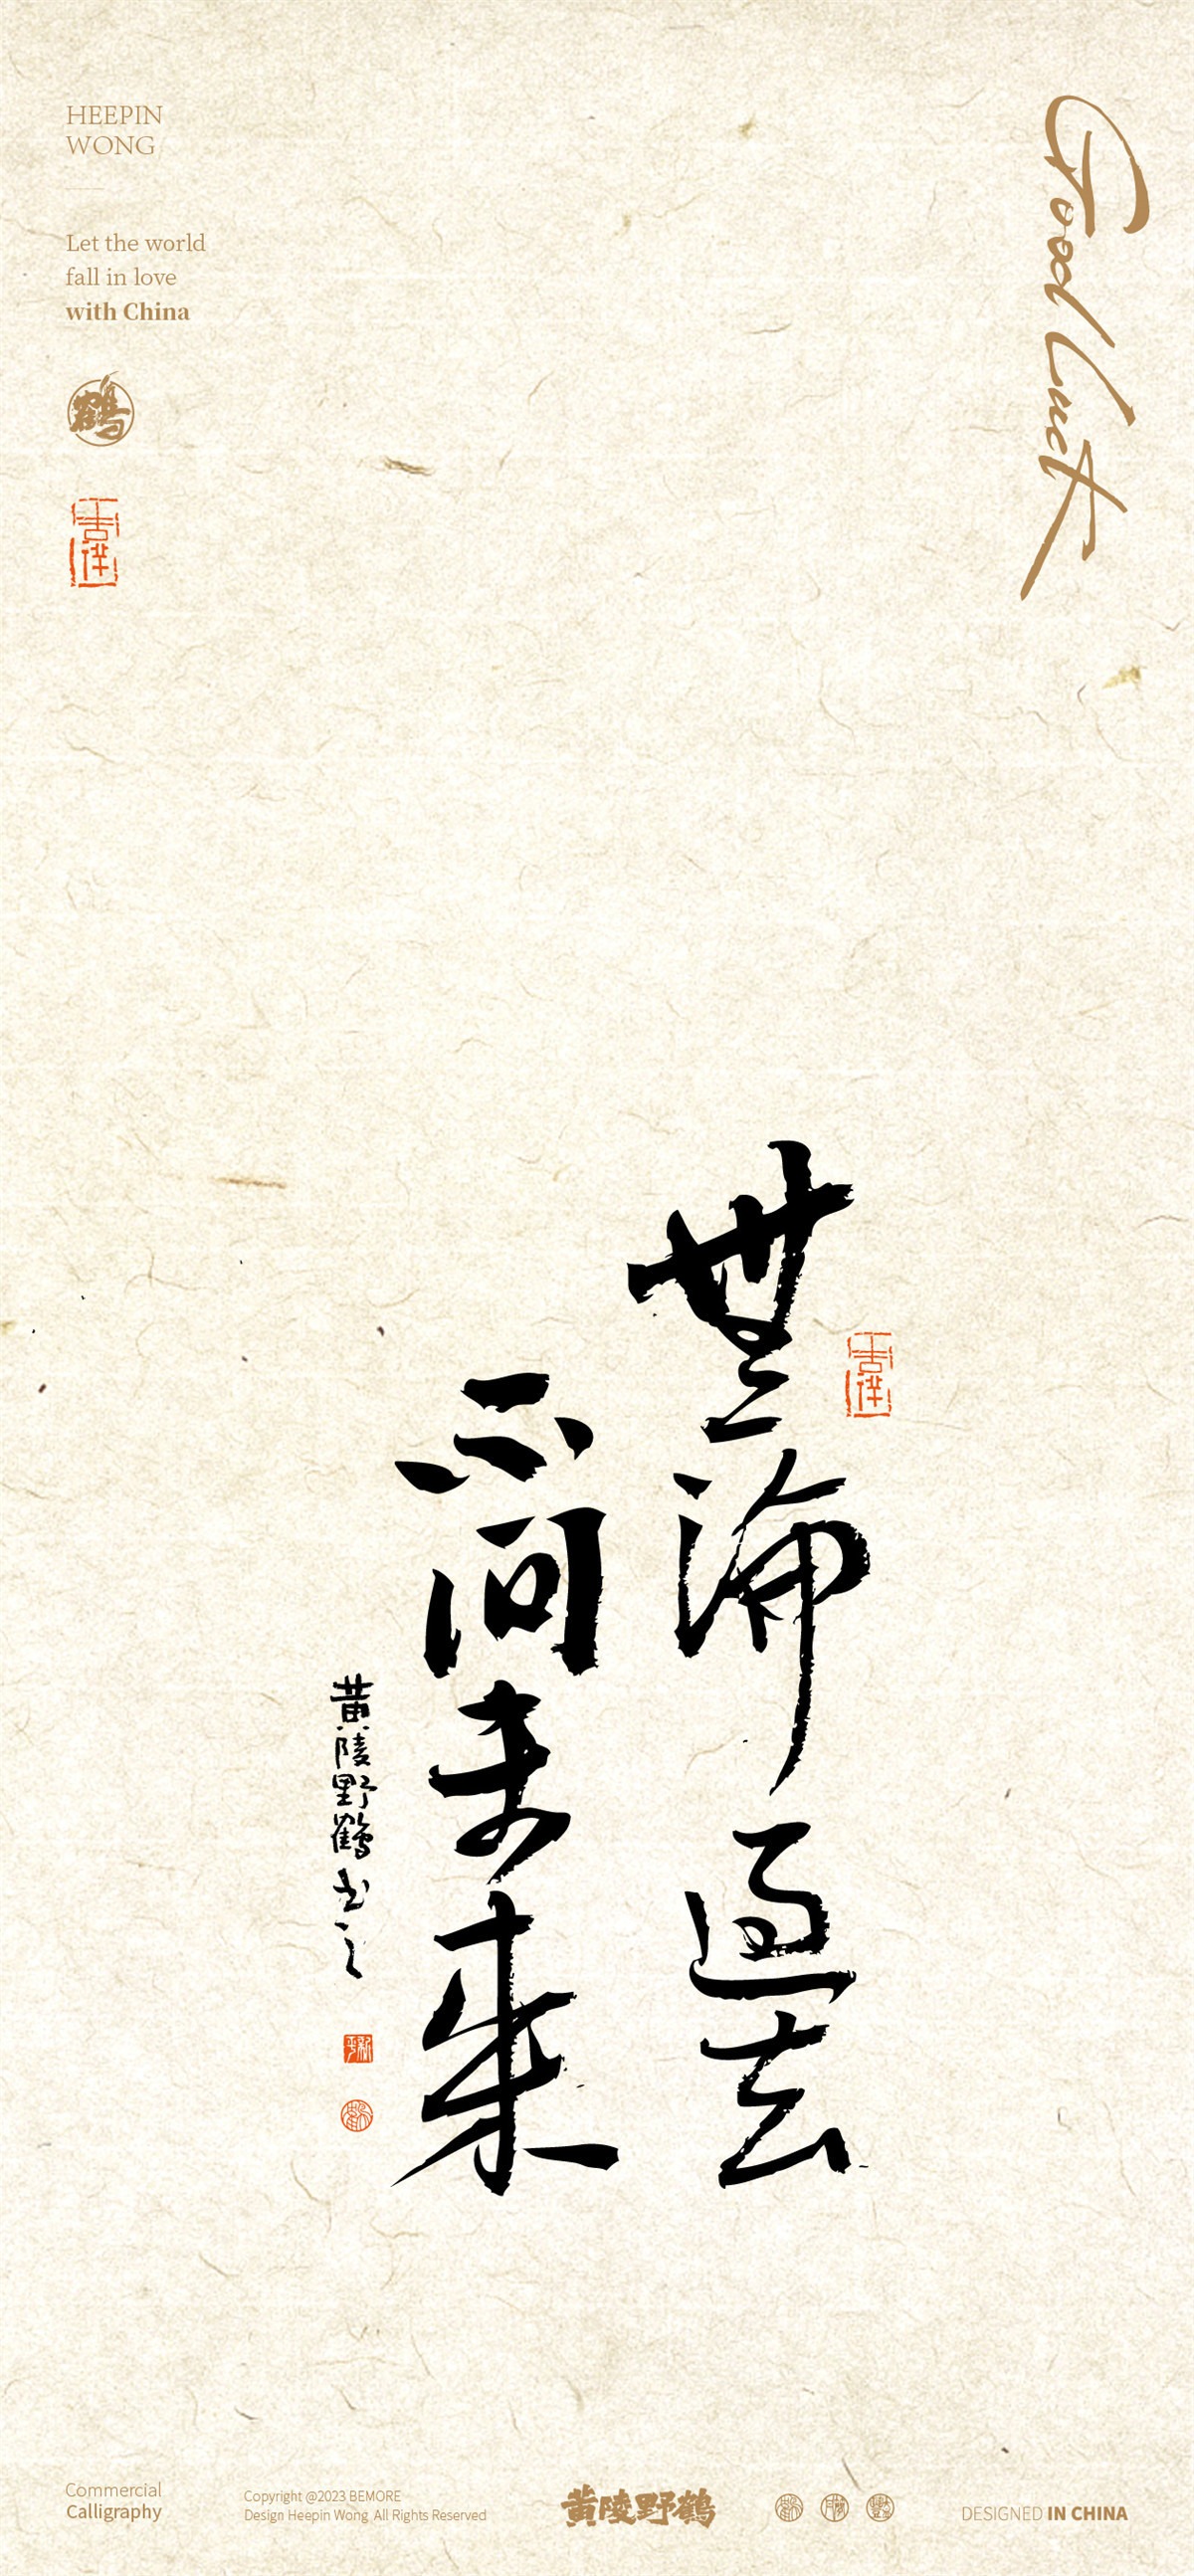 HEEPIN
WONG
Let the world
fall in love
with China
鶴
Good luck
無論過去
不問未来
黄陵野鶴书之
Commercial
Calligraphy
Copyright @2023 BEMORE
Design Heepin Wong. All Rights Reserved
黄陵野鶴
DESIGNED IN CHINA